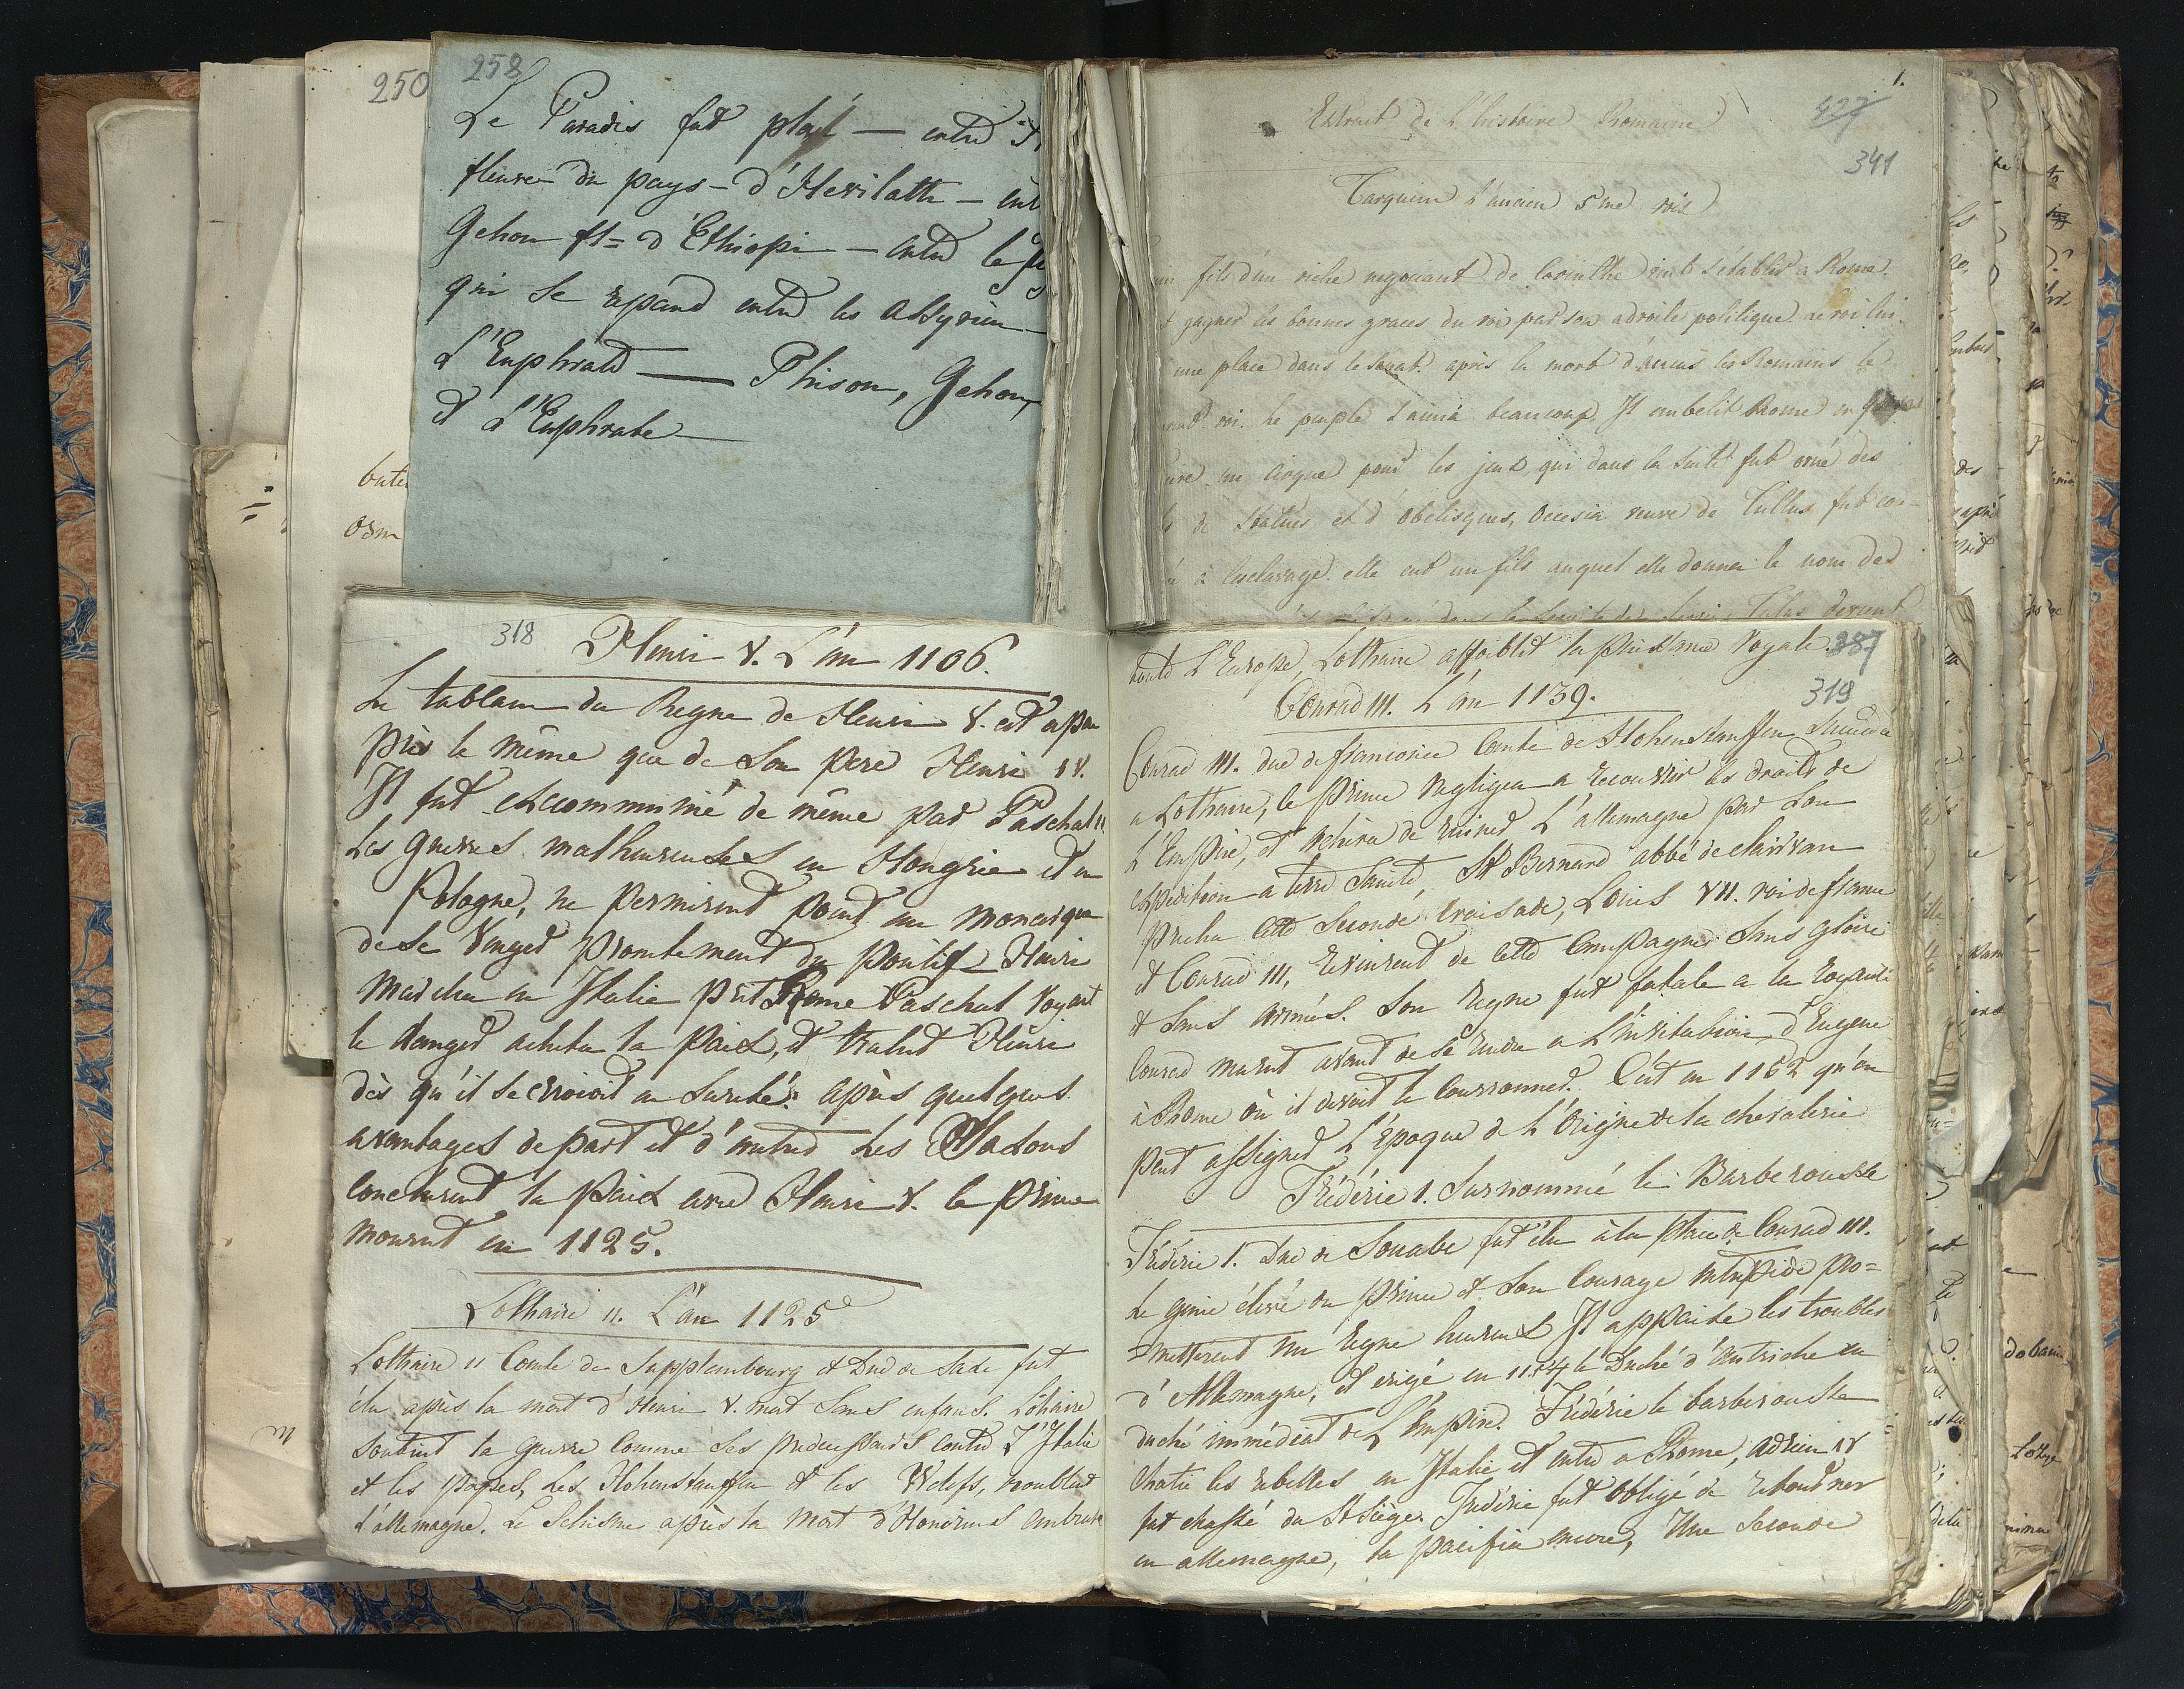 250
258
Le Paradis fut placé — entre
fleuve du pays - d'Hevilath —
Gehon fl= d'Ethiopi — entre le
qui se repand entre les Assyrien —
L'Euphrate — Phison, Gehon,
et L'Euphrate —
1.
Extrait de L'histoire Romaine
427
341
Tarquin L'ancien 5me roi
fils d'un riche negociant de Corinthe vint s'etablir a Rome.
gagner les bonnes graces du roi par son adroite politique. Le roi lui
une place dans le Senat. après la mort d'ancus les Romains le
roi. Le peuple l'aima beaucoup. Il embelit Rome en
un Cirque pour les jeux, qui dans la Suite fut orné des
de Statues et d'obelisques, Ocresia veuve de Tullus fut con-
à l'esclavage. elle eut un fils auquel elle donna le nom de
318
Henri V. L'an 1106.
Le tableau du Regne de Henri V. est apeu
près le même que de Son pere Henri IV.
Il fut excommunié de même par Paschal II.
Les guerres malheureuses en Hongrie et en
Pologne, ne permirent point au monarque
de se Venger promtement du pontif. Henri
marcha en Italie prit Rome Paschal Voyant
le danger acheta la paix, et trahit Henri
dès qu'il se croioit en Sureté: après quelques
avantages de part et d'autre Les Saxons
conclurent la paix avec Henri V. le prince
mourut en 1125.
Lothaire II. L'an 1125
Lothaire II Comte de Supplembourg et Duc de Saxe fut
élu après la mort d'Henri V. mort Sans enfans. Lothaire
Soutint la guerre Comme Ses predecesseurs contre L'Italie
et les papes, Les Hohenstauffen et les Welefs, troublent
l'allemagne. Le Schisme après la mort d'Honorius embrase
toute L'Europe, Lothaire affoiblit la puissance Royale.
387
319
Conrad III. L'an 1139.
Conrad III. duc de franconie Comte de Hohenstauffen Succeda
a Lothaire, le prince negligea a recouvrir les droits de
L'Empire, et acheva de ruiner L'allemagne par Son
expedition a terre Sainte, St Bernard abbé de clairvau
precha cette Seconde Croisade, Louis VII. roi de france
et Conrad III, revinrent de cette Campagne Sans gloire
et Sans armés. Son regne fut fatale a la Royauté
Conrad mourut avant de se rendre a L'invitation d'Eugene
à Rome où il devoit le Couronner. C'est en 1152 qu'on
peut assigner L'époque de L'Origine de la chevalerie
Fréderic I. Surnommé le Barberousse
Fréderic I. Duc de Souabe fut élu à la place de Conrad III.
Le genie élevé du prince et Son Courage intrepide pro=
=metterent un regne heureux Il appaise les troubles
d'Allemagne, et erigé en 1154 le Duché d'Autriche en
duché immédiat de L'Empire. Fréderic le barberousse
chatie les rebelles en Italie, et entre a Rome, Adrien IV
fut chassé du St Siège. Frédéric fut obligé de retourner
en allemagne, la pacifia encore, Une Seconde